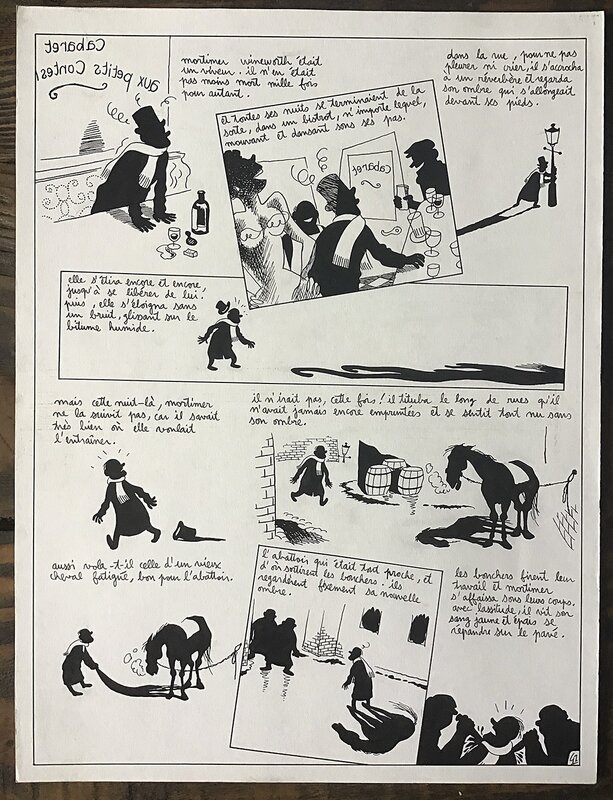 Cabaret
aux petits Contes!
mortimer wineworth était
un viveur. il n'en était
pas moins mort mille fois
pour autant.
et toutes ses nuits se terminaient de la
sorte, dans un bistrot, n'importe lequel,
mouvant et dansant sous ses pas.
Cabaret
dans la rue, pour ne pas
pleurer ni crier, il s'accrocha
à un réverbère et regarda
son ombre qui s'allongeait
devant ses pieds.
elle s'étira encore et encore,
jusqu'à se libérer de lui.
puis, elle s'éloigna sans
un bruit, glissant sur le
bitume humide.
mais cette nuit-là, mortimer
ne la suivit pas, car il savait
très bien où elle voulait
l'entraîner.
il n'irait pas, cette fois! il tituba le long de rues qu'il
n'avait jamais encore empruntées et se sentit tout nu sans
son ombre.
aussi vola-t-il celle d'un vieux
cheval fatigué, bon pour l'abattoir.
l'abattoir qui était tout proche, et
d'où sortirent les bouchers. ils
regardèrent fixement sa nouvelle
ombre.
les bouchers firent leur
travail et mortimer
s'affaissa sous leurs coups.
avec lassitude, il vit son
sang jaune et épais se
répandre sur le pavé.